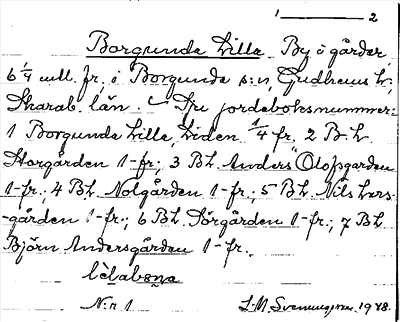 1 — 2
Borgunda Lilla By o gårder,
6 1/4 mtl. fr. i Borgunda s:n, Gudhems h.,
Skarab. län. Sju jordeboksnummer:
1 Borgunda Lilla, Liden 1/4 fr, 2 B. L.
Storgården 1 fr; 3 B.L. Anders Olofsgården
1 fr., 4 B.L. Nolgården 1 fr., 5 B.L. Nils Lars-
gården 1 fr.; 6 B.L. Sörgården 1 fr.; 7 B.L.
Björn Andersgården 1 fr.
N:r 1
1948.